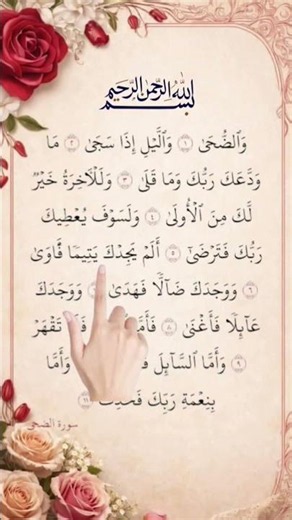 بسم الله الرحمن الرحيم
وَٱلضُّحَىٰ ١ وَٱلَّيْلِ إِذَا سَجَىٰ ٢ مَا
وَدَّعَكَ رَبُّكَ وَمَا قَلَىٰ ٣ وَلَلْءَاخِرَةُ خَيْرٌ
لَّكَ مِنَ ٱلْأُولَىٰ ٤ وَلَسَوْفَ يُعْطِيكَ
رَبُّكَ فَتَرْضَىٰٓ ٥ أَلَمْ يَجِدْكَ يَتِيمًا فَـَٔاوَىٰ
٦ وَوَجَدَكَ ضَآلًّا فَهَدَىٰ ٧ وَوَجَدَكَ
عَآئِلًا فَأَغْنَىٰ ٨ تَقْهَرْ
٩ وَأَمَّا ٱلسَّآئِلَ وَأَمَّا
بِنِعْمَةِ رَبِّكَ فَحَدِّثْ ١١
سورة الضحى